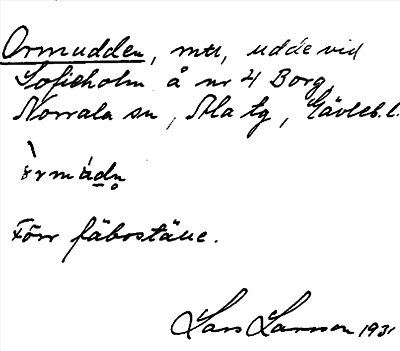 Ormudden, mtl, udde vid
Sofieholm å nr 4 Borg
Norrala sn, Ala tg, Gävleb. l.
Förr fäboställe.
Lars Larsson 1931